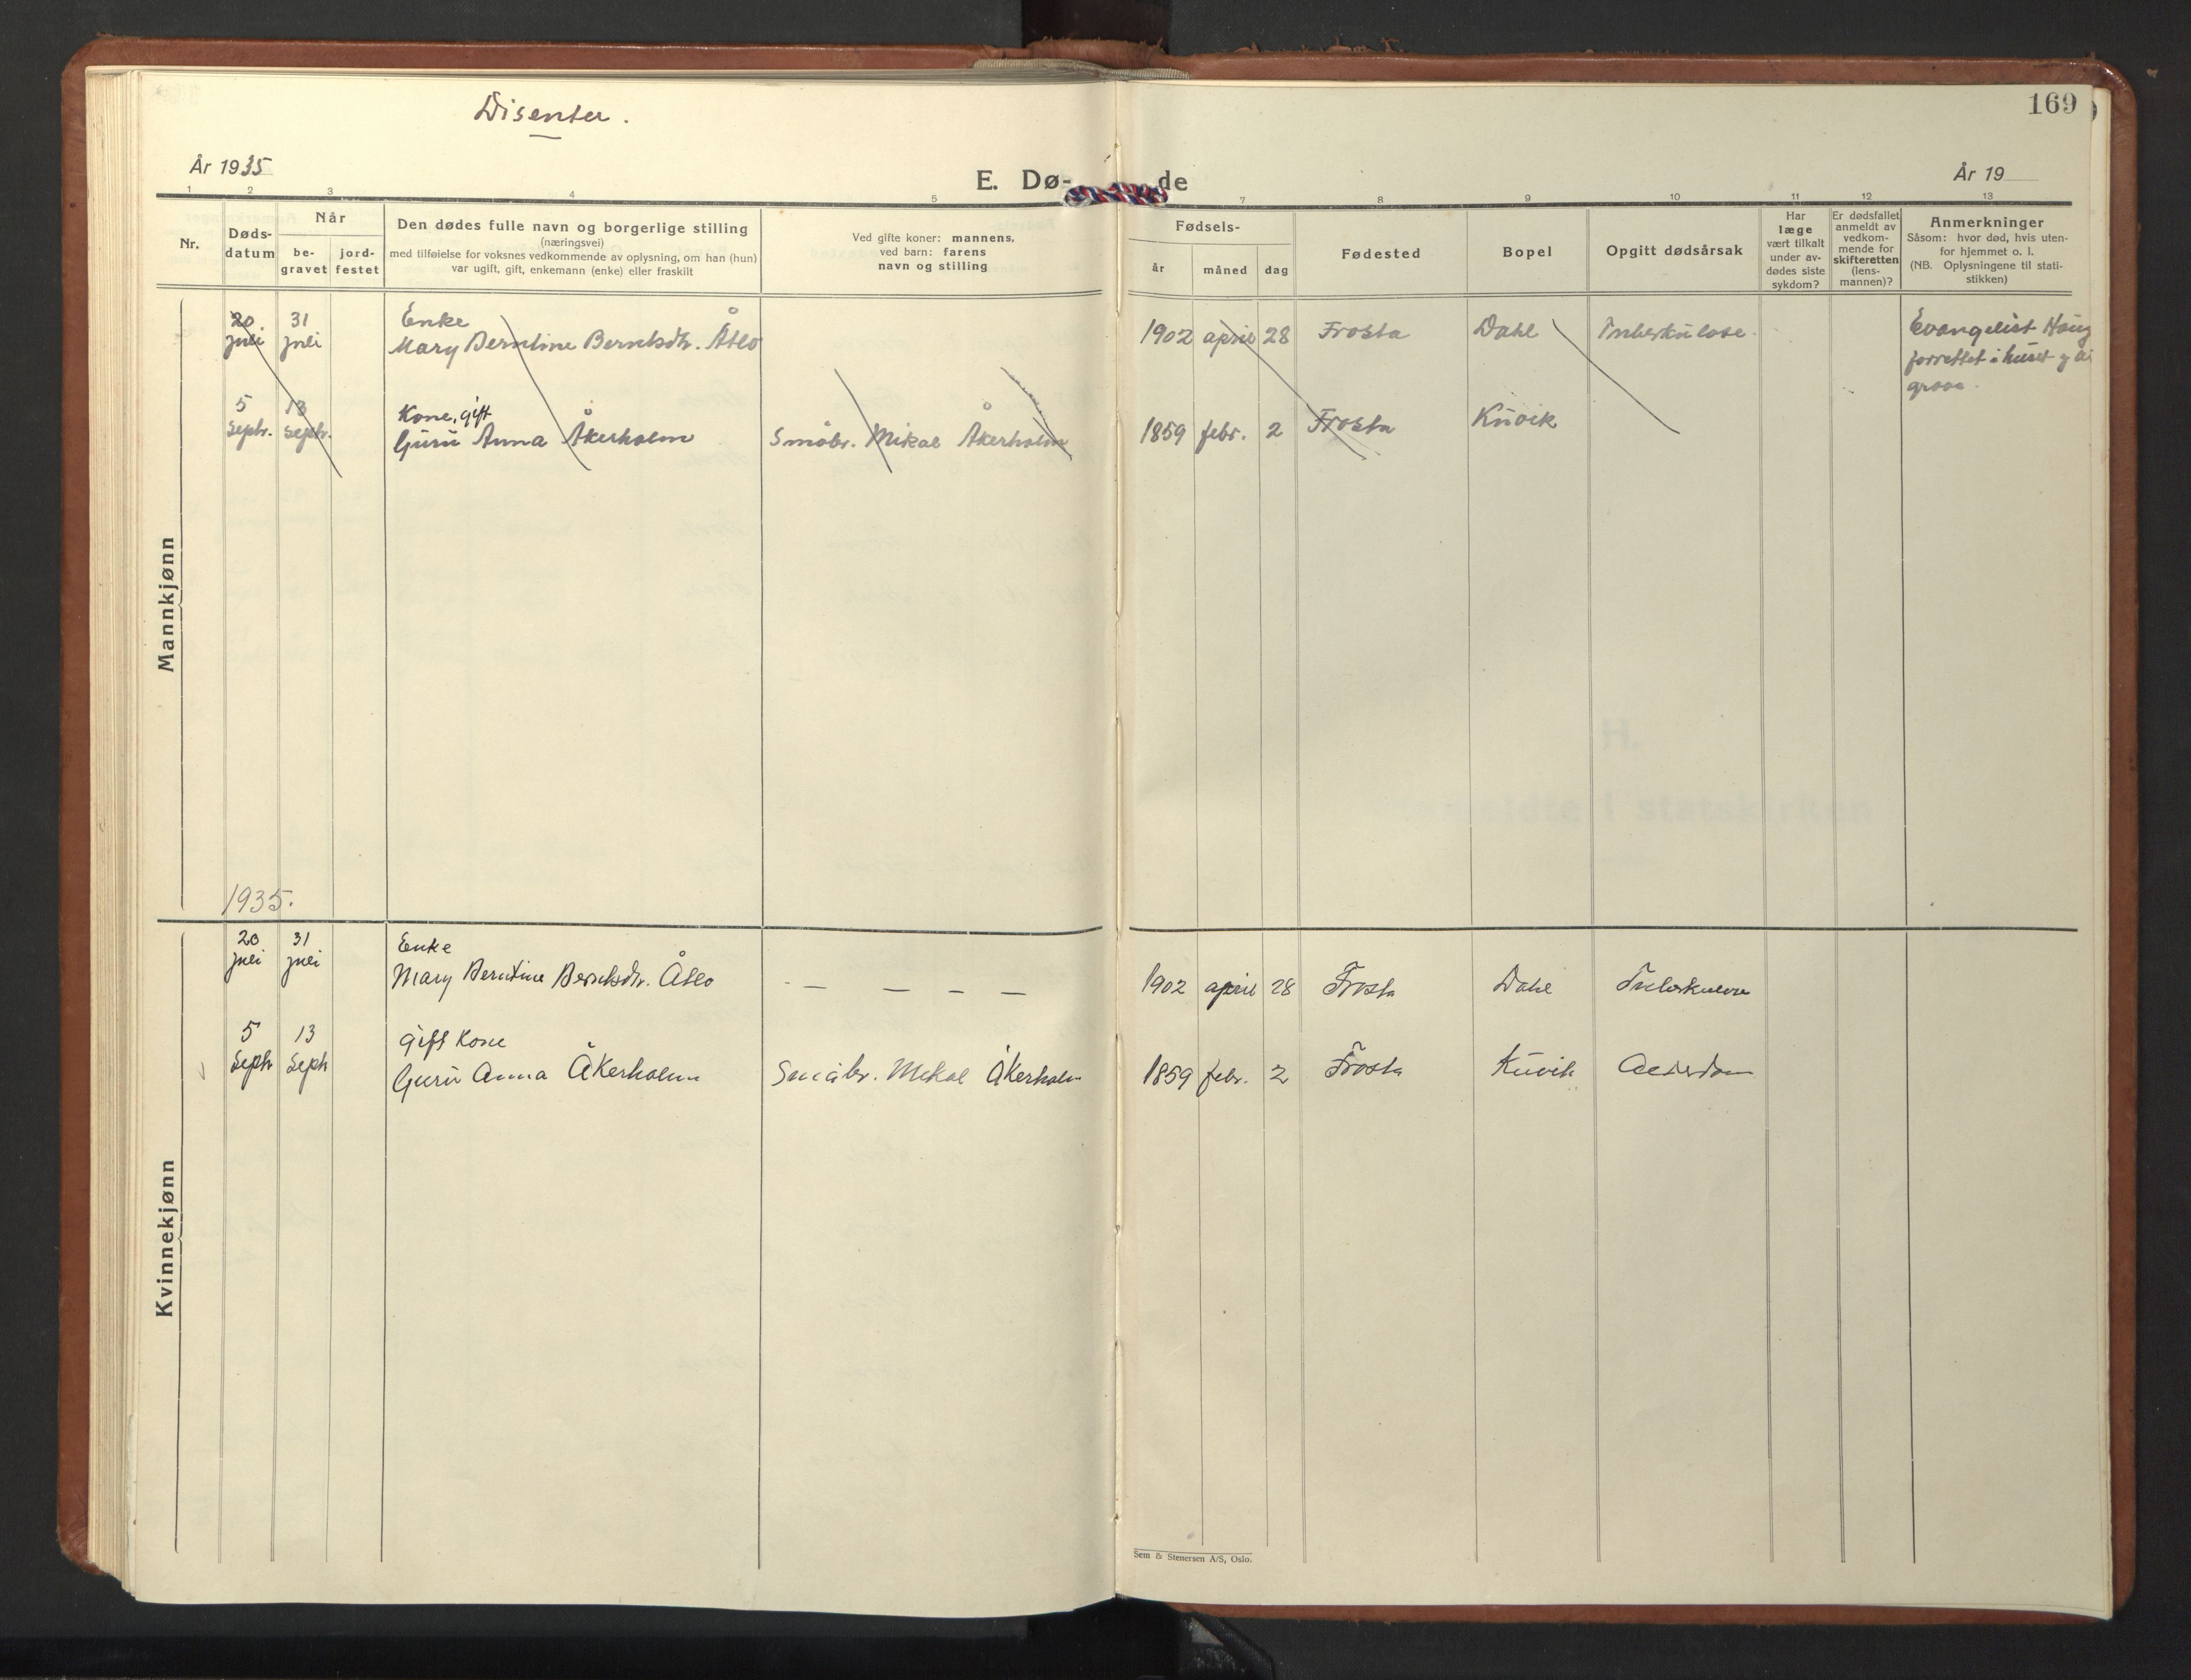 Disenter.
169
År 1935
E. Dø- de
År 19
1 2 3 4 5 7 8 9 10 11 12 13
Nr.
Døds-
datum
Når
be-
gravet
jord-
festet
Den dødes fulle navn og borgerlige stilling
(næringsvei)
med tilføielse for voksnes vedkommende av oplysning, om han (hun)
var ugift, gift, enkemann (enke) eller fraskilt
Ved gifte koner: mannens,
ved barn: farens
navn og stilling
Fødsels-
år måned dag
Fødested
Bopel
Opgitt dødsårsak
Har
læge
vært tilkalt
under av-
dødes siste
sykdom?
Er dødsfallet
anmeldt av
vedkom-
mende for
skifteretten
(lens-
mannen)?
Anmerkninger
Såsom: hvor død, hvis uten-
for hjemmet o. l.
(NB. Oplysningene til stati-
stikken)
Mannkjønn
20 31 Enke
juli juli Mary Berntine Berntsdtr. Åtlo 1902 april 28 Frosta Dahl Tuberkulose. Evangelist Haug
forrettet i huset
5 13 Kone, gift
Septr. Septr. Guru Anna Åkerholm Småbr. Mikal Åkerholm 1859 febr. 2 Frosta Kuvik
1935.
Kvinnekjønn
20 31 Enke
juli juli Mary Berntine Berntsdtr. Åtlo - — — — — 1902 april 28 Frosta Dahl Tuberkulose
5 13 Gift Kone
Septr Septr Guru Anna Åkerholm Småbr. Mikal Åkerholm 1859 febr. 2 Frosta Kuvik Alderdom
Sem & Stenersen A/S, Oslo.